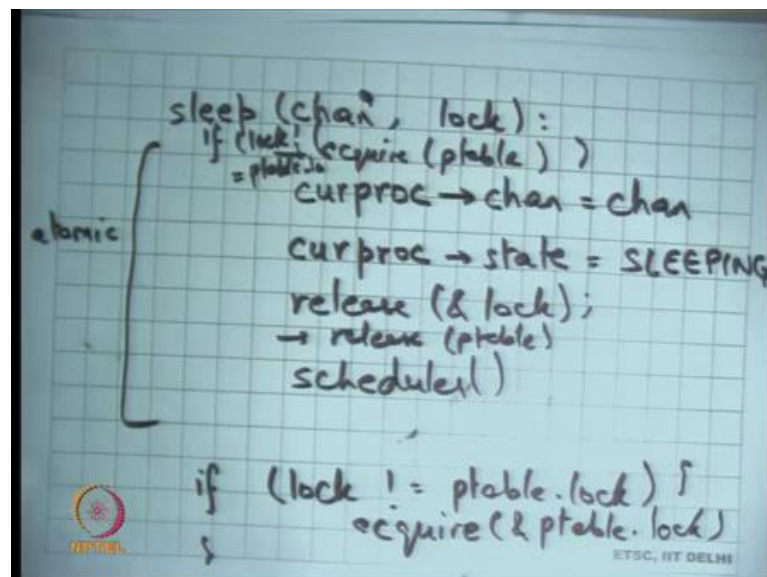 sleep (chan, lock) :
if (lock ! (acquire (ptable) )
= ptable.lo
curproc → chan = chan
atomic
curproc → state = SLEEPING
release (& lock);
→ release (ptable)
scheduler()
if (lock != ptable.lock) {
acquire (& ptable.lock)
}
NPTEL
ETSC, IIT DELHI